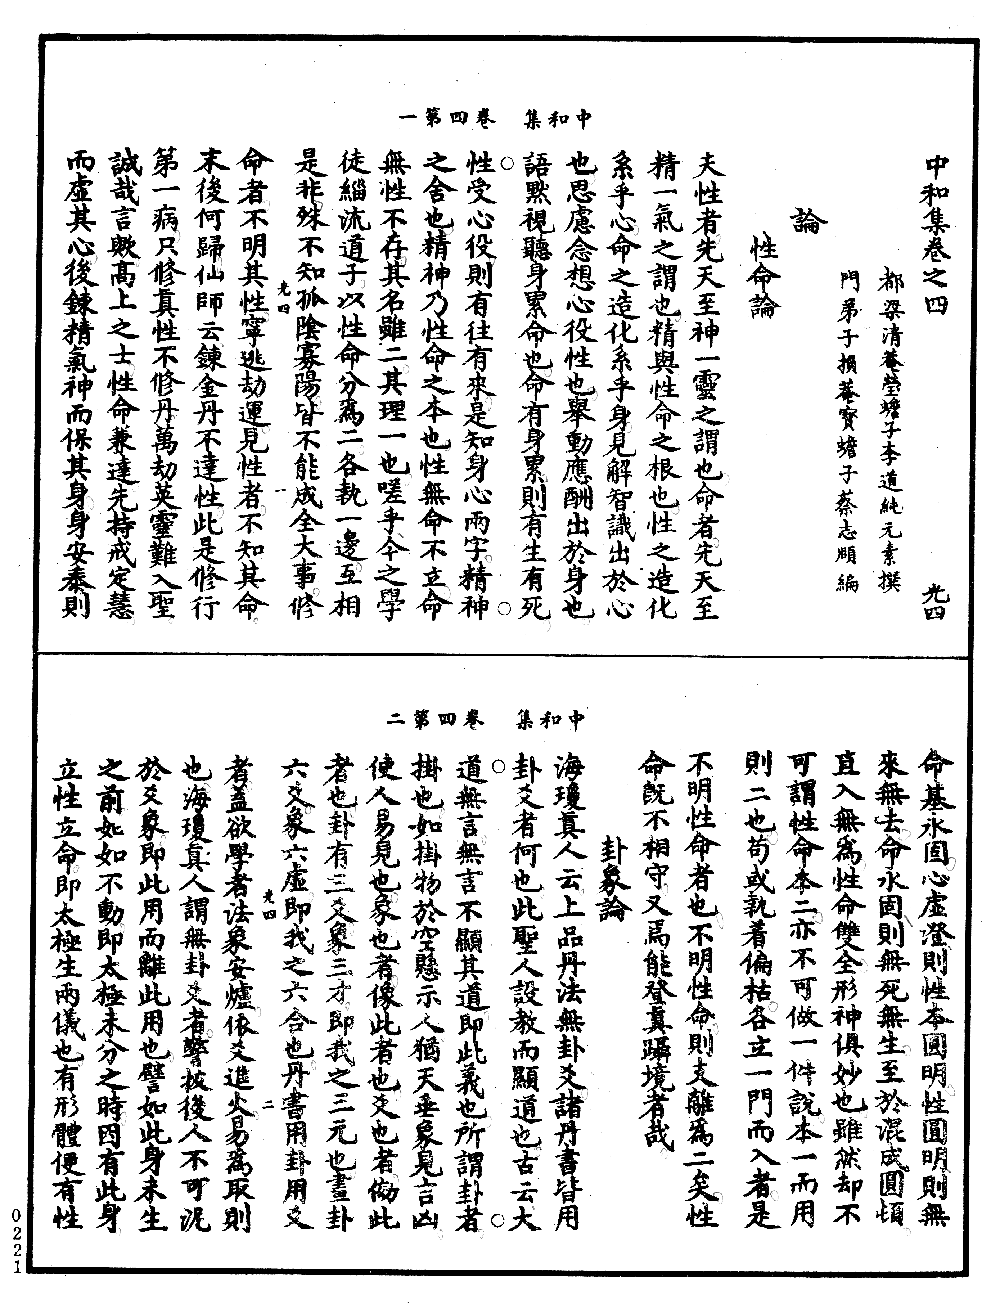 中和集卷之四　光四
都梁清菴瑩蟾子李道純元素撰
門弟子損菴寶蟾子蔡志頤編
論
性命論
夫性者先天至神一靈之謂也命者先天至
精一氣之謂也精與性命之根也性之造化
系乎心命之造化系乎身見解智識出於心
也思慮念想心役性也舉動應酬出於身也
語默視聽身累命也命有身累則有生有死
性受心役則有往有來是知身心兩字精神
之舍也精神乃性命之本也性無命不立命
無性不存其名雖二其理一也嗟乎今之學
徒緇流道子以性命分爲二各執一邊互相
是非殊不知孤陰寡陽皆不能成全大事修
光四　一
命者不明其性寧逃劫運見性者不知其命
末後何歸仙師云鍊金丹不達性此是修行
第一病只修真性不修丹萬劫英靈難入聖
誠哉言歟高上之士性命兼達先持戒定慧
而虛其心後鍊精氣神而保其身身安泰則
中和集　卷四第一
命基永固心虛澄則性本圓明性圓明則無
來無去命永固則無死無生至於混成圓頓
直入無爲性命雙全形神俱妙也雖然却不
可謂性命本二亦不可做一件說本一而用
則二也苟或執着偏枯各立一門而入者是
不明性命者也不明性命則支離爲二矣性
命既不相守又焉能登真躡境者哉
卦象論
海瓊真人云上品丹法無卦爻諸丹書皆用
卦爻者何也此聖人設教而顯道也古云大
道無言無言不顯其道即此義也所謂卦者
掛也如掛物於空懸示人猶天垂象見吉凶
使人易見也象也者像此者也爻也者傚此
者也卦有三爻象三才即我之三元也畫卦
六爻象六虛即我之六合也丹書用卦用爻
光四　二
者蓋欲學者法象安爐依爻進火易爲取則
也海瓊真人謂無卦爻者警拔後人不可泥
於爻象即此用而離此用也譬如此身未生
之前如如不動即太極未分之時因有此身
立性立命即太極生兩儀也有形體便有性
中和集　卷四第二
0221